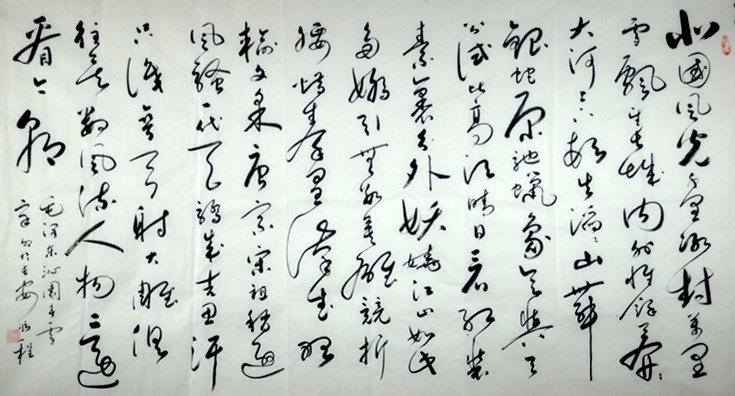 北國风光千里冰封萬里
雪飘望长城内外惟馀莽、
大河上下顿失滔、山舞
银蛇原驰蜡象欲与天
公试比高须晴日看红装
素裹分外妖娆江山如此
多娇引無数英雄竞折
腰惜秦皇汉武略
输文采唐宗宋祖稍逊
风骚一代天骄成吉思汗
只识弯弓射大雕俱
往矣数风流人物还
看今朝
毛泽东沁園春雪
於长安